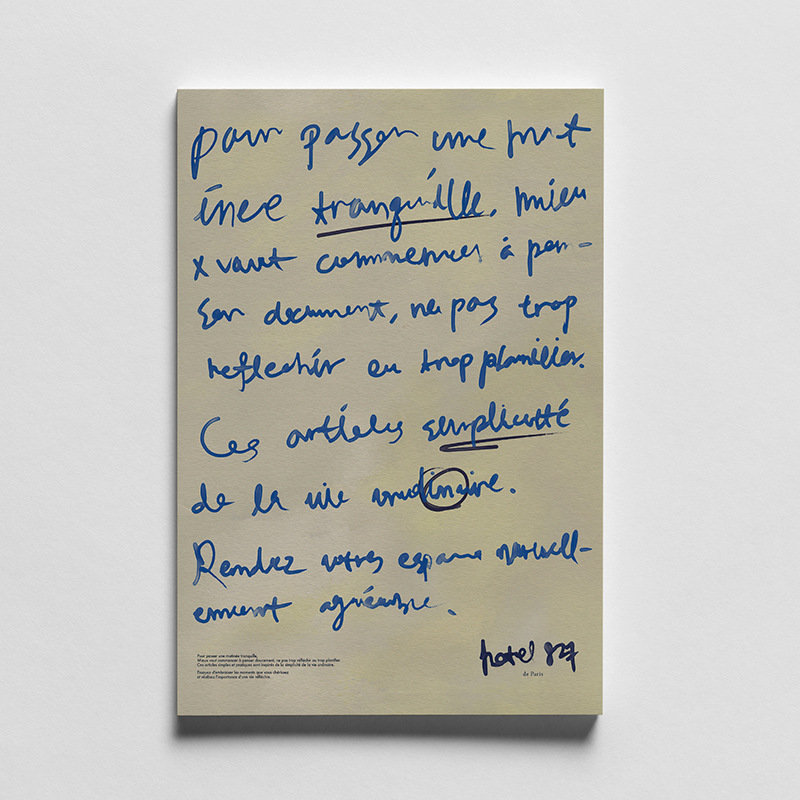 pour passer une mat
inee tranquille, mieu
x vaut commencer à pen-
ser document, ne pas trop
reflechir ou trop planifier.
Ces articles simplicité
de la vie
Rendez votres espace naturell-
ement agréable.
Pour passer une matinée tranquille,
Mieux vaut commencer à penser doucement, ne pas trop réfléchir ou trop planifier
Ces articles simples et pratiques sont inspirés de la simplicité de la vie ordinaire.
Essayez d'embrasser les moments que vous chérissez
et réalisez l'importance d'une vie réfléchie.
hotel 827
de Paris